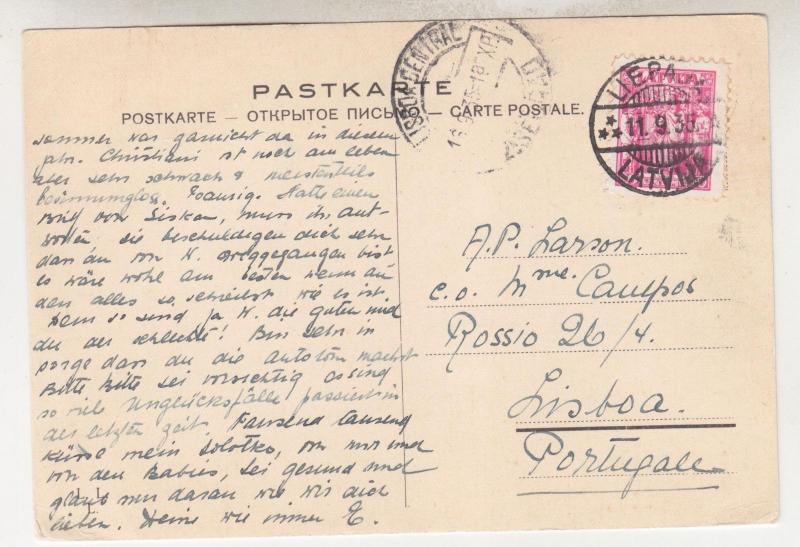 PASTKARTE
POSTKARTE — ОТКРЫТОЕ ПИСЬМО — CARTE POSTALE.
LIEPAJA
11.9.35
LATVIJA
CENTRAL
sommer war garnicht da in diesem
jahr. Christiani ist noch am leben
aber sehr schwach & meistenteils
besinnungslos. Hatte einen
Brief von Siskan, muss ihr ant-
worten sie beschuldigen dich sehr
dass du von K. weggegangen bist
es wäre wohl am besten wenn du
den alles so schreibst wie es ist.
Denn so sind ja K. die guten und
du der schlechte! Bin sehr in
sorge dass du die autotour machst
Bitte Bitte sei vorsichtig es sind
so viele Unglücksfälle passiert in
der letzten zeit. Tausend tausend
küsse mein Solotko, von mir und
von den Babies, sei gesund und
glaub nur daran wie wir dich
lieben. Deine wie immer E.
A.P. Larson.
c.o. Mme. Campos
Rossio 26/4.
Lisboa.
Portugale